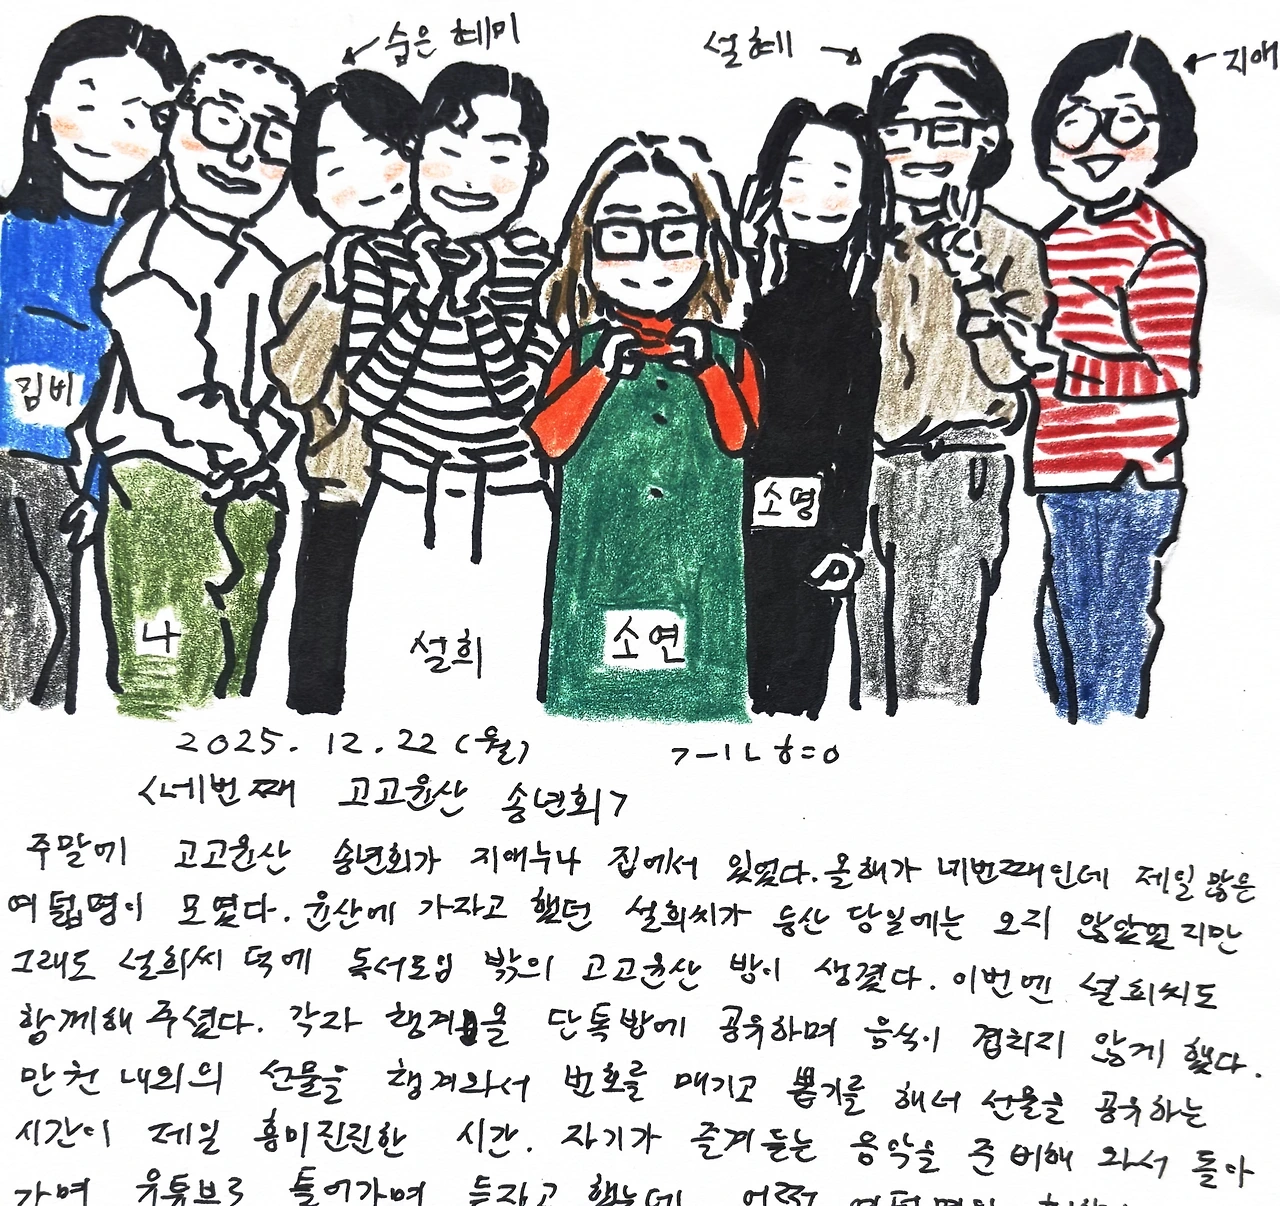 숨은 혜미
설혜
지애
짐비
나
설희
소연
소명
2025. 12. 22 (월)
<네번째 고고윤산 송년회>
주말에 고고윤산 송년회가 지애누나 집에서 있었다. 올해가 네번째인데 제일 많은
여덟명이 모였다. 윤산에 가자고 했던 설희씨가 등산 당일에는 오지 않았었지만
그래도 설희씨 덕에 독서모임 밖의 고고윤산 방이 생겼다. 이번엔 설희씨도
함께해 주셨다. 각자 챙겨올 단톡방에 공유하며 음식이 겹치지 않게 했다.
만원 내외의 선물을 챙겨와서 번호를 매기고 뽑기를 해서 선물을 공유하는
시간이 제일 흥미진진한 시간. 자기가 즐겨듣는 음악을 준비해 와서 돌아
가며 유튜브로 틀어가며 듣자고 했는데